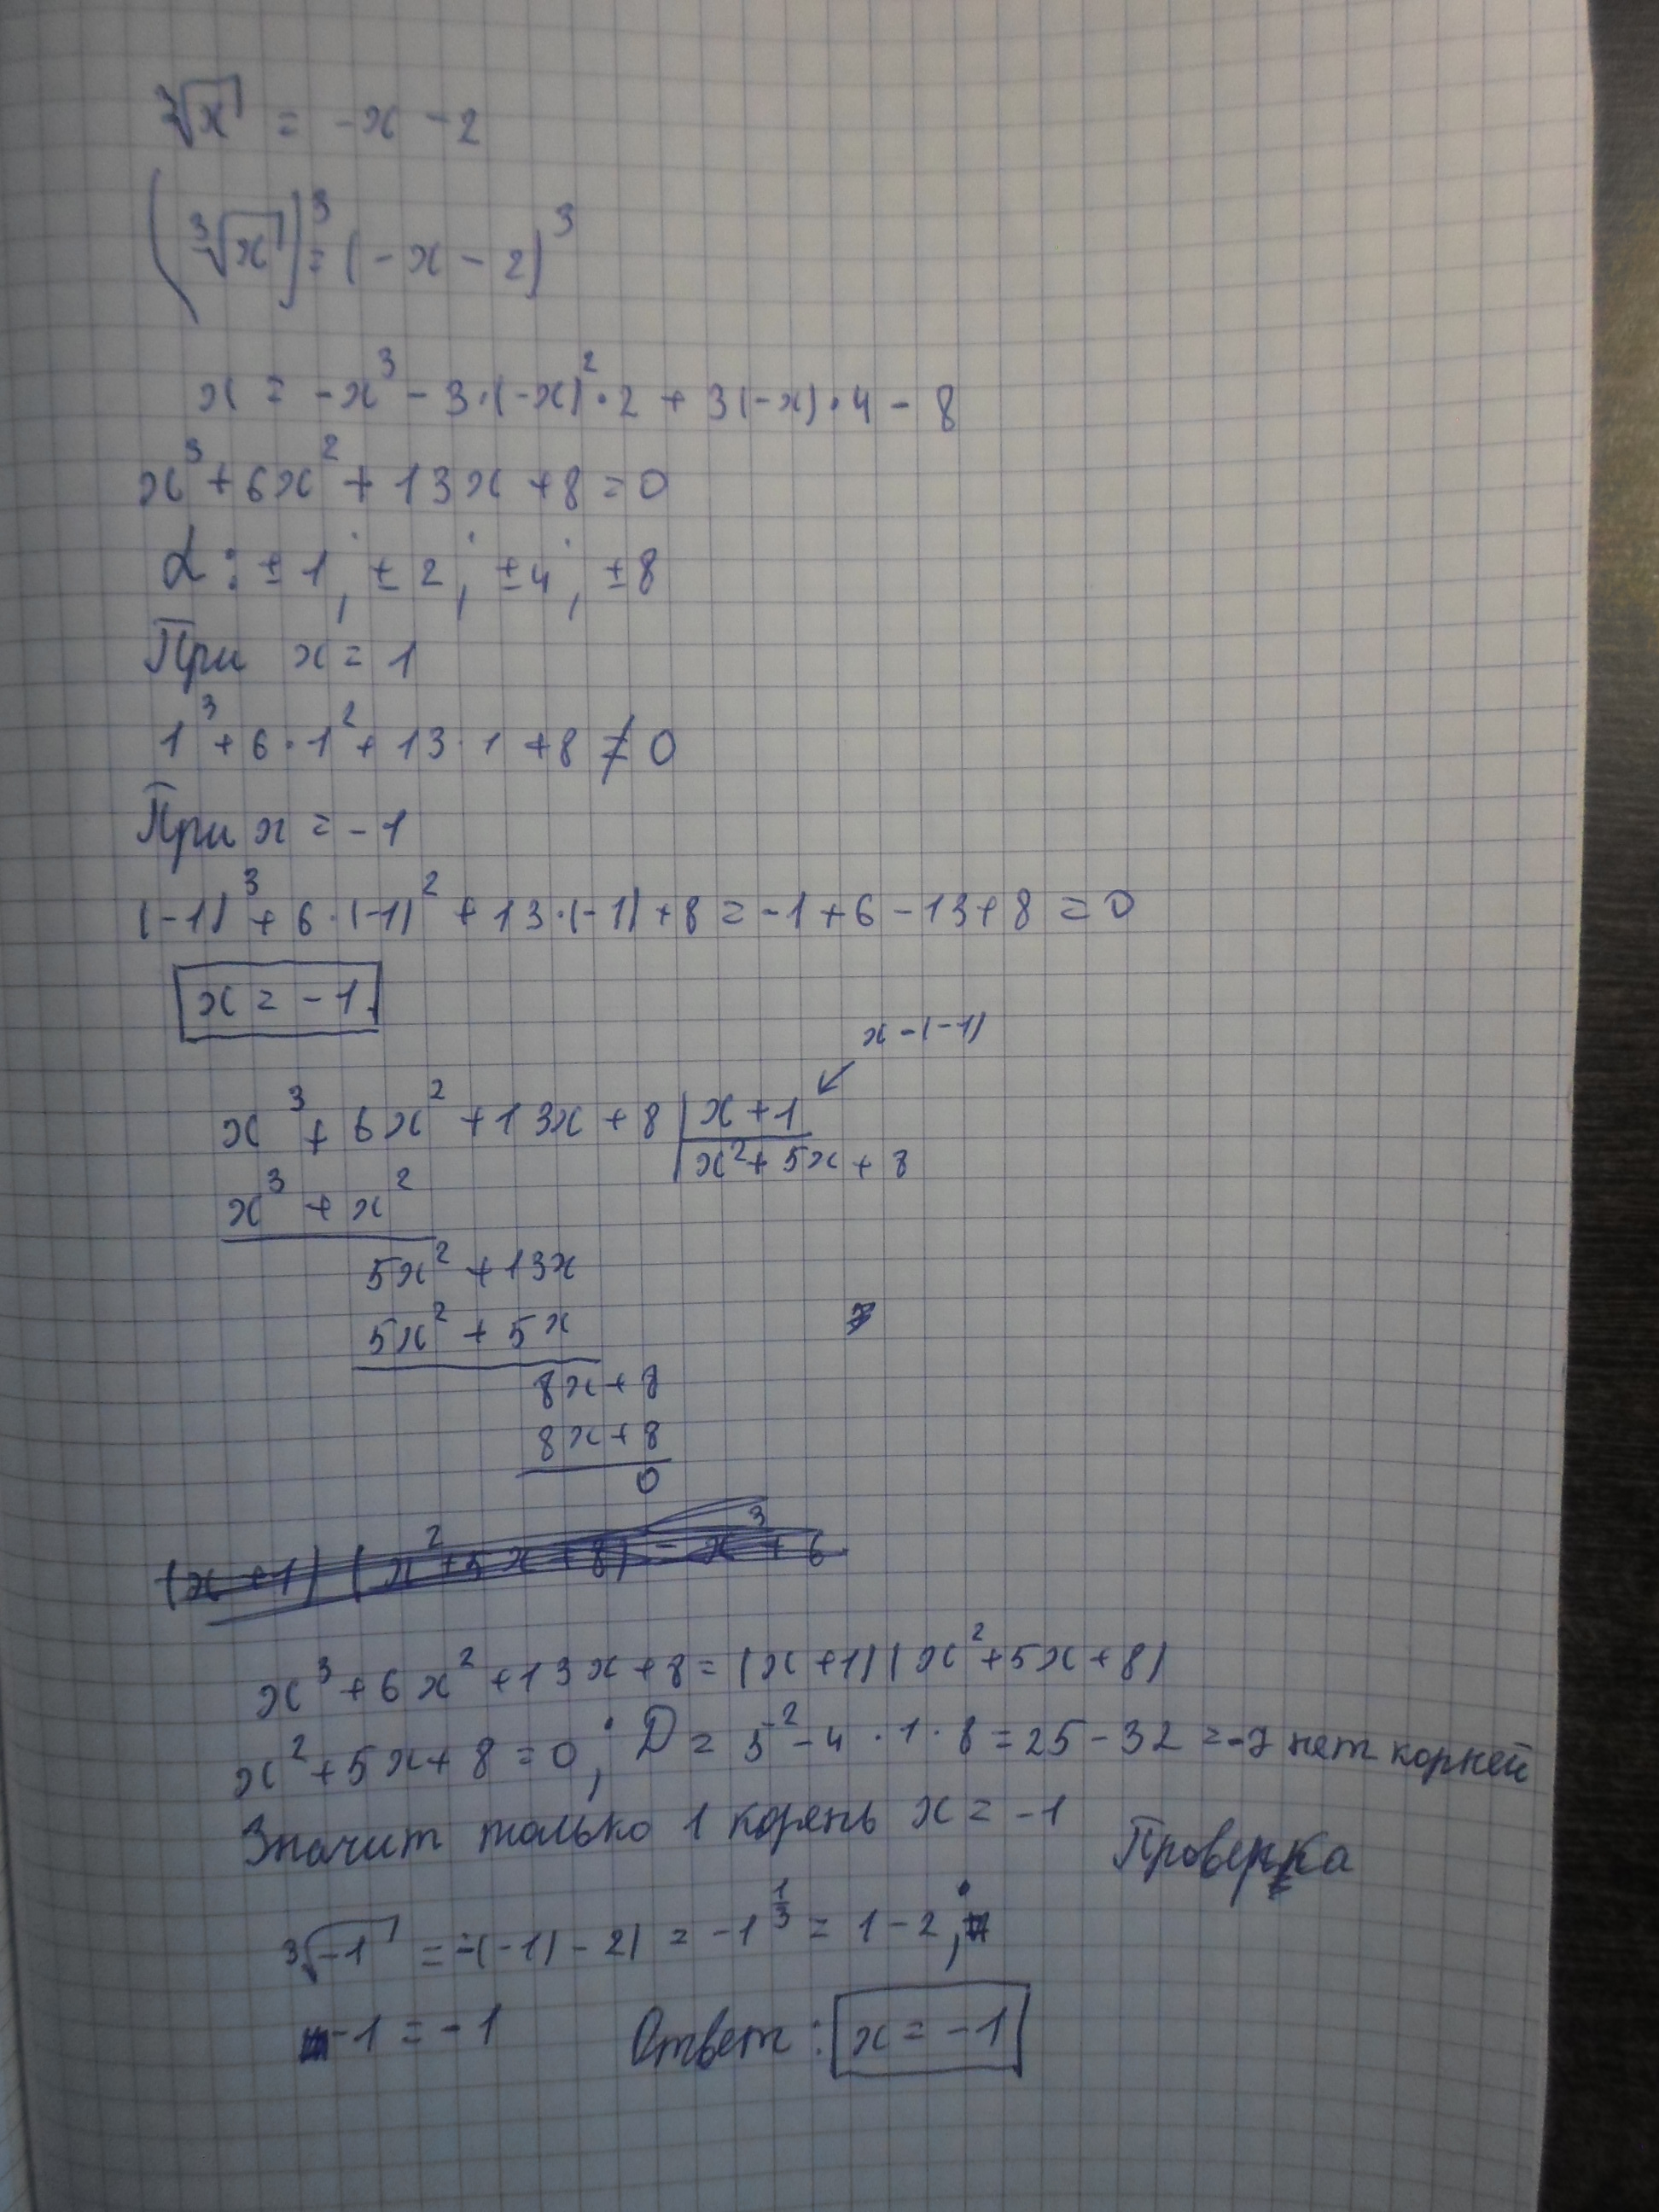 ∛x = -x - 2
(∛x)³ = (-x - 2)³
x = -x³ - 3·(-x)²·2 + 3(-x)·4 - 8
x³ + 6x² + 13x + 8 = 0
α: ±1; ±2; ±4; ±8
При x = 1
1³ + 6·1² + 13·1 + 8 ≠ 0
При x = -1
(-1)³ + 6·(-1)² + 13·(-1) + 8 = -1 + 6 - 13 + 8 = 0
x = -1.
x - (-1)
x³ + 6x² + 13x + 8 | x + 1
x³ + x² | x² + 5x + 8
5x² + 13x
5x² + 5x
8x + 8
8x + 8
0
(x + 1)(x² + 5x + 8) = x³ + 6
x³ + 6x² + 13x + 8 = (x + 1)(x² + 5x + 8)
x² + 5x + 8 = 0; D = 5² - 4·1·8 = 25 - 32 = -7 нет корней
Значит только 1 корень x = -1
Проверка
∛-1 = -(-1) - 2) = -1^(1/3) = 1 - 2;
-1 = -1 Ответ: x = -1